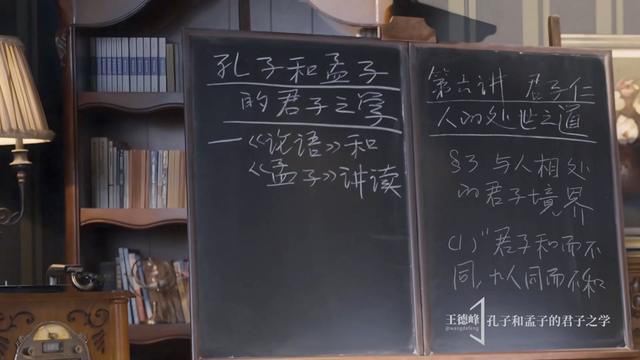 孔子和孟子
的君子之学
—《论语》和
《孟子》讲读
第六讲 君子仁
人的处世之道
§3 与人相处
的君子境界
(1)“君子和而不
同,小人同而不和
王德峰
@wangdefeng
孔子和孟子的君子之学